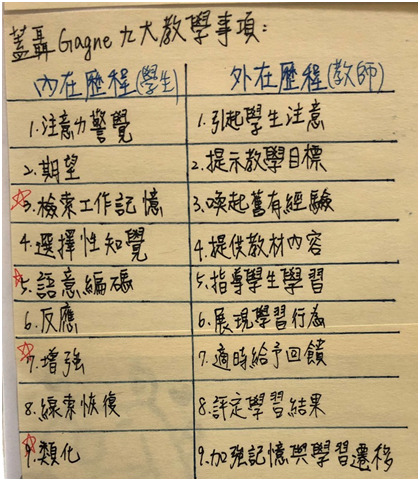 蓋聶Gagne九大教學事項:
內在歷程(學生) 外在歷程(教師)
1.注意力警覺 1.引起學生注意
2.期望 2.提示教學目標
☆3.檢索工作記憶 3.喚起舊有經驗
4.選擇性知覺 4.提供教材內容
☆5.語意編碼 5.指導學生學習
6.反應 6.展現學習行為
☆7.增強 7.適時給予回饋
8.線索恢復 8.評定學習結果
☆9.類化 9.加強記憶與學習遷移